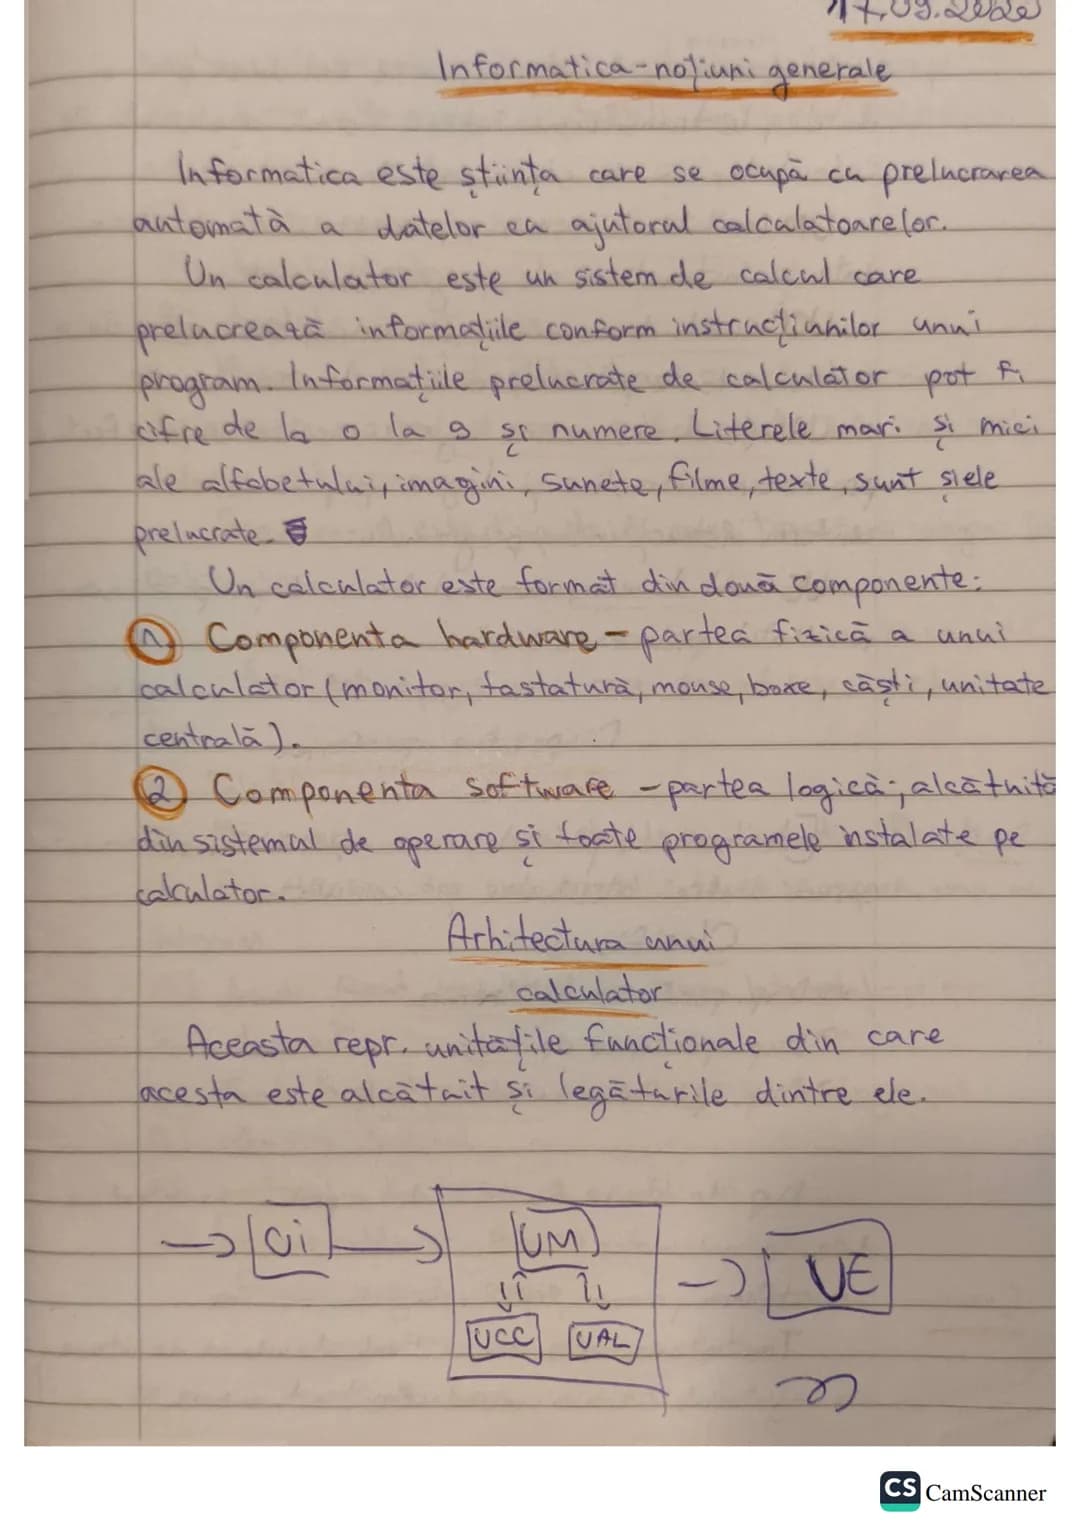 17.09.202
Informatica-noțiuni generale
Informatica este știința care se ocupă cu prelucrarea
automată a datelor cu ajutorul calculatoarelor.
Un calculator este un sistem de calcul care
prelucrează informațiile conform instrucțiunilor unui
program. Informațiile prelucrate de calculator pot fi
cifre de la 0 la 9 și numere. Literele mari și mici
ale alfabetului, imagini, sunete, filme, texte, sunt și ele
prelucrate.
Un calculator este format din două componente:
1 Componenta hardware - partea fizică a unui
calculator (monitor, tastatură, mouse, boxe, căști, unitate
centrală).
2 Componenta software - partea logică; alcătuită
din sistemul de operare și toate programele instalate pe
calculator.
Arhitectura unui
calculator
Aceasta repr. unitățile funcționale din care
acesta este alcătuit și legăturile dintre ele.
Ui UM UE
UCC UAL
CS CamScanner